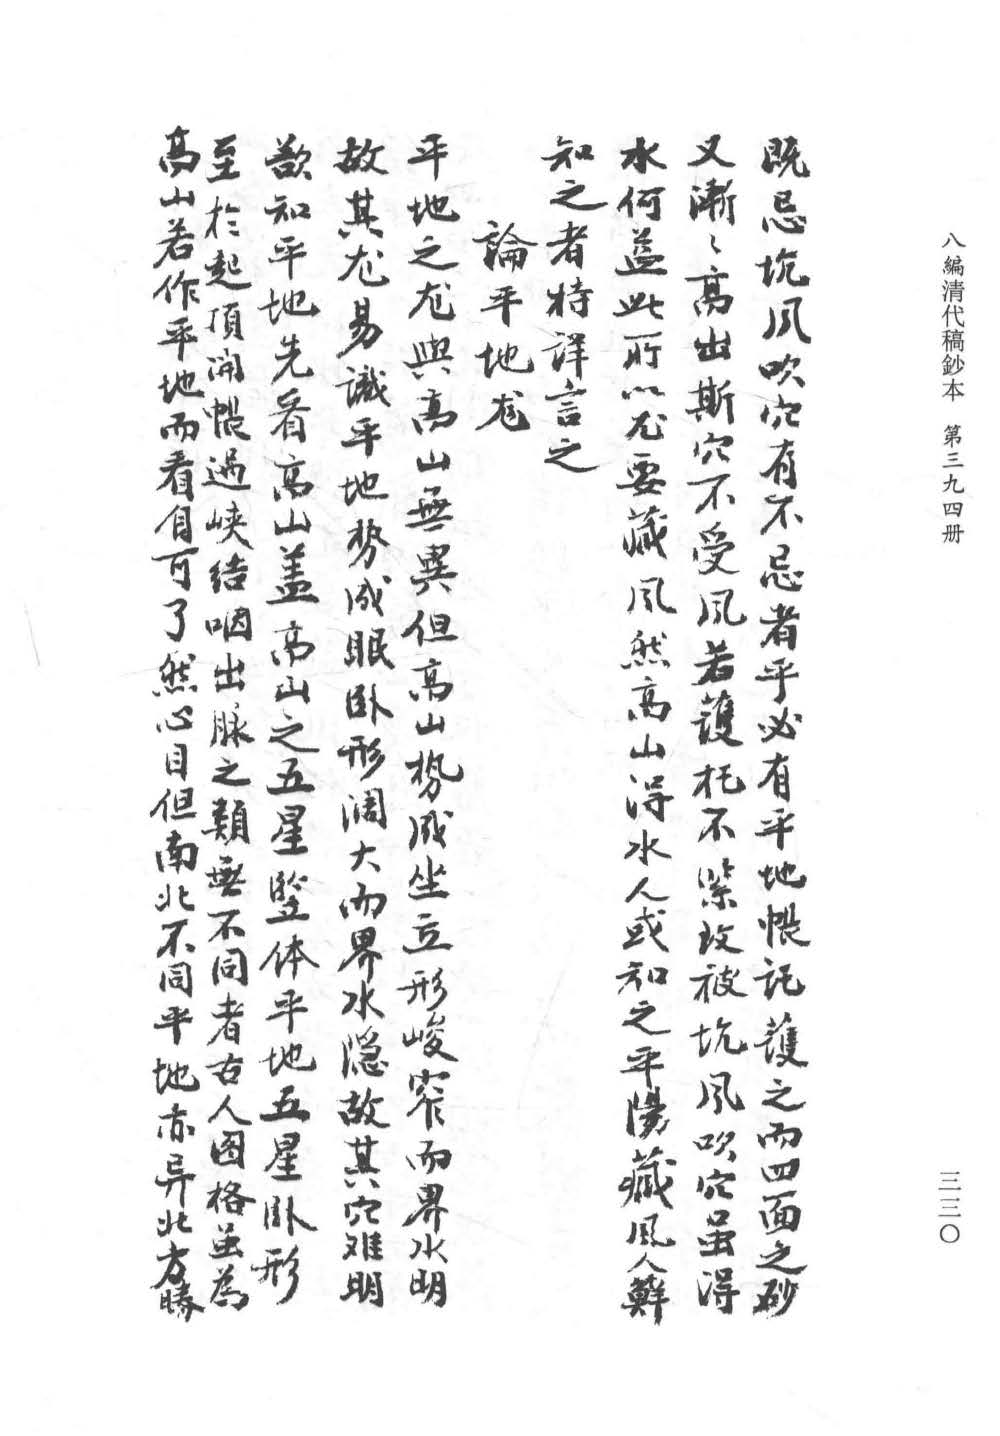 八編清代稿鈔本　第三九四册
三三〇
既忌坑风吹穴有不忌者乎必有平地帳託護之而四面之砂
又漸〻高出斯穴不受风若護托不紧致被坑风吹穴虽淂
水何益此所以龙要藏风然高山淂水人或知之平陽藏风人鲜
知之者特詳言之
論平地龙
平地之龙與高山無異但高山势成坐立形峻窄而界水明
故其龙易識平地势成眠卧形阔大而界水隐故其穴难明
欲知平地先看高山盖高山之五星竪体平地五星卧形
至於起頂開帳過峡结咽出脉之類無不同者古人图格虽为
高山若作平地而看自可了然心目但南北不同平地亦异北方勝